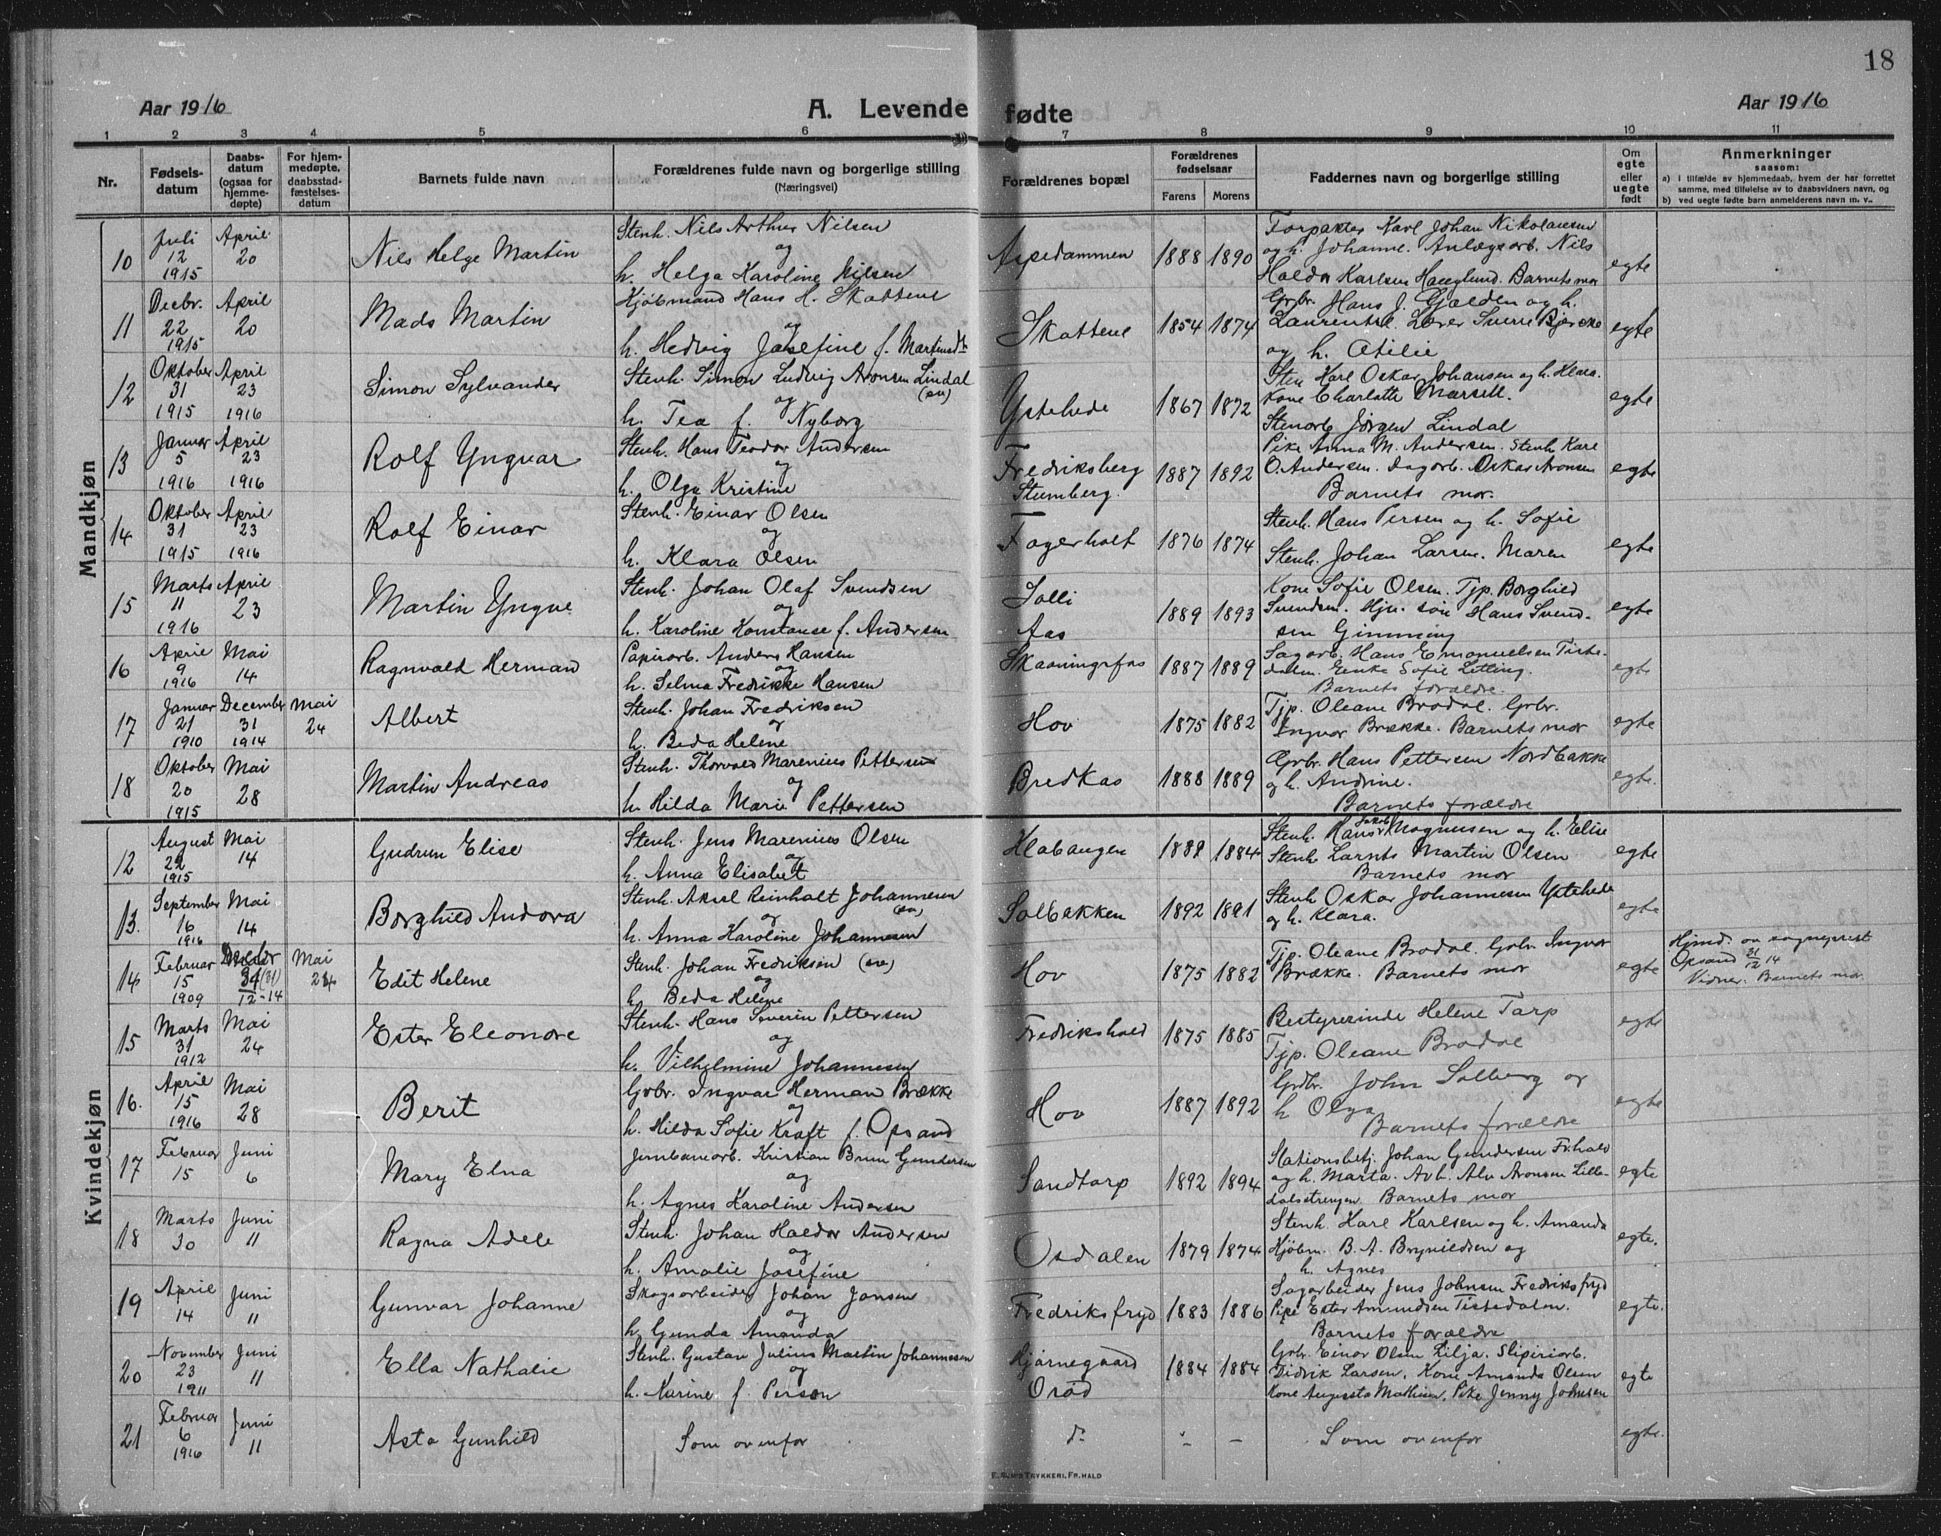 18
Aar 1916
A. Levende fødte
Aar 1916
1 2 3 4 5 6 7 8 9 10 11
Nr.
Fødsels-
datum
Daabs-
datum
(ogsaa for
hjemme-
døpte)
For hjem-
medøpte,
daabsstad-
fæstelses-
datum
Barnets fulde navn
Forældrenes fulde navn og borgerlige stilling
(Næringsvei)
Forældrenes bopæl
Forældrenes
fødselsaar
Farens Morens
Faddernes navn og borgerlige stilling
Om
egte
eller
uegte
født
Anmerkninger
saasom:
a) I tilfælde av hjemmedaab, hvem der har forrettet
samme, med tilføielse av to daabsvidners navn, og
b) ved uegte fødte barn anmelderens navn m. v.
Mandkjøn
10 Juli 12 1915 April 20 Nils Helge Martin
Stenh. Nils Arthur Nilsen
og
h. Helga Karoline Nilsen
Aspedammen 1888 1890
Forpakter Karl Johan Nikolaisen
og h. Johanne. Anlægsarb. Nils
Haldor Karlsen Hauglund. Barnets mor
egte
11 Decbr. 22 1915 April 20 Mads Martin
Kjøbmand Hans H. Skottene
og
h. Hedvig Josefine f. Martinsdtr
Skottene 1854 1874
Grbr. Hans J. Gjølden og h.
Laurentse. Lærer Sverre Bjercke
og h. Otilie
egte
12 Oktober 31 1915 April 23 1916 Simon Sylvander
Stenh. Simon Ludvig Aronsen Lindal
(sv)
og
h. Tea f. Nyborg
Ystehede 1867 1872
Sten Karl Oskar Johansen og h. Klara.
Kone Charlotte
Stenarb Jørgen Lindal
egte
13 Januar 5 1916 April 23 1916 Rolf Yngvar
Stenh. Hans Teodor Andersen
og
h. Olga Kristine
Fredriksberg
Stumberg. 1887 1892
Pike Anna M. Andersen. Stenh. Karl
O. Andersen. Dagarb. Oskar Aronsen
Barnets mor.
egte
14 Oktober 31 1915 April 23 1916 Rolf Einar
Stenh. Einar Olsen
og
h. Klara Olsen
Fagerholt 1876 1874
Stenh. Hans Persen og h. Sofie
Stenh. Johan Larsen. Maren
egte
15 Marts 11 1916 April 23 Martin Yngve
Stenh. Johan Olaf Svendsen
og
h. Karoline Konstanse f. Andersen
Solli
Aas 1889 1893
Kone Sofie Olsen. Tjp. Borghild
Svendsen. Hjv. søn Hans Svend-
sen Gimming
egte
16 April 9 1916 Mai 14 Ragnvald Herman
Papirarb. Anders Hansen
og
h. Selma Fredrikke Hansen
Skaaningsfos 1887 1889
Sagarb. Hans Emanuelsen Tiste-
dalen. Enke Sofie Letting.
Barnets forældre.
egte
17 Januar 21 1910 December 31 1914 Mai 24 Albert
Stenh. Johan Fredriksen
og
h. Beda Helene
Hov 1875 1882
Tjp. Oleane Brodal. Grbr.
Ingvar Brække. Barnets mor
egte
18 Oktober 20 1915 Mai 28 Martin Andreas
Stenh. Thorvald Marenius Pettersen
og
h. Hilda Marie Pettersen
Bredkas 1888 1889
Grbr. Hans Pettersen Nordbakke
og h. Andrine.
Barnets forældre
egte.
Kvindekjøn
12 August 22 1915 Mai 14 Gudrun Elise
Stenh. Jens Marenius Olsen
og
h. Anna Elisabet
Klabaugen 1884
Stenh. Hans Jakob Magnussen og h. Elise
Stenh Martin Olsen
Barnets mor
egte
13. September 16 1916 Mai 14 Borghild Andora
Stenh. Aksel Reinholt Johannesen
(sv)
og
h. Anna Karoline Johannesen
Solbakken 1892 1891
Stenh Oskar Johannesen Ystehede
og h. Klara.
egte
14 Februar 15 1909 Decbr (31) 12-14 Mai 24 Edit Helene
Stenh. Johan Fredriksen (sv)
og
h Beda Helene
Hov 1875 1882
Tjp. Oleane Brodal. Grbr. Ingvar
Brække. Barnets mor
egte
Hjmd. av sogneprest
Opsand 31/12 14
Vidner. Barnets mor.
15 Marts 31 1912 Mai 24 Ester Eleonore
Stenh. Hans Severin Pettersen
og
h. Vilhelmine Johannesen
Fredrikshald 1875 1885
Bestyrerinde Helene Tarp
Tjp. Oleane Brodal
egte
16. April 15 1916 Mai 28 Berit
Grbr. Ingvar Herman Brække
og
h. Hilda Sofie Kraft f. Opsand
Hov 1887 1892
Grdbr. John Solberg og
h Olga
Barnets forældre
egte
17 Februar 15 Juni 6 Mary Elna
Jernbanearb. Kristian Brun Gundersen
og
h. Agnes Karoline Andersen
Sandtorp 1892 1894
Stationsbetj. Johan Gundersen Fr.hald
og h. Marta. Arb. Alv Aronsen Lille-
dalsstrengen. Barnets mor
egte
18 Marts 30 Juni 11 Ragna Adele
Stenh. Johan Haldor Andersen
og
h. Amalie Josefine
Osdalen 1879 1874
Stenh. Karl Karlsen og h. Amanda
Kjøbm. B. A. Brynildsen og
h. Agnes
egte.
19 April 14 Juni 11 Gunvor Johanne
Skogsarbeider Johan Jansen
og
h. Gunda Amanda
Fredriksfryd 1883 1886
Sagarbeider Jens Johnsen Fredriksfryd
Pike Ester Amundsen Tistedalen.
Barnets forældre
egte.
20 November 23 1911 Juni 11 Ella Nathalie
Stenh. Gustav Julius Martin Johannesen
og
h. Karine f. Person
Hjørnegaard
Orød 1884 1884
Grbr. Einar Olsen Lilja. Sliperiarb.
Didrik Larsen. Kone Amanda Olsen
Kone Augusta Mathisen. Pike Jenny Johnsen
egte
21 Februar 6 1916 Juni 11 Asta Gunhild
Som ovenfor
d. " –
Som ovenfor
egte.
E. Sem's Trykkeri, Fr.hald